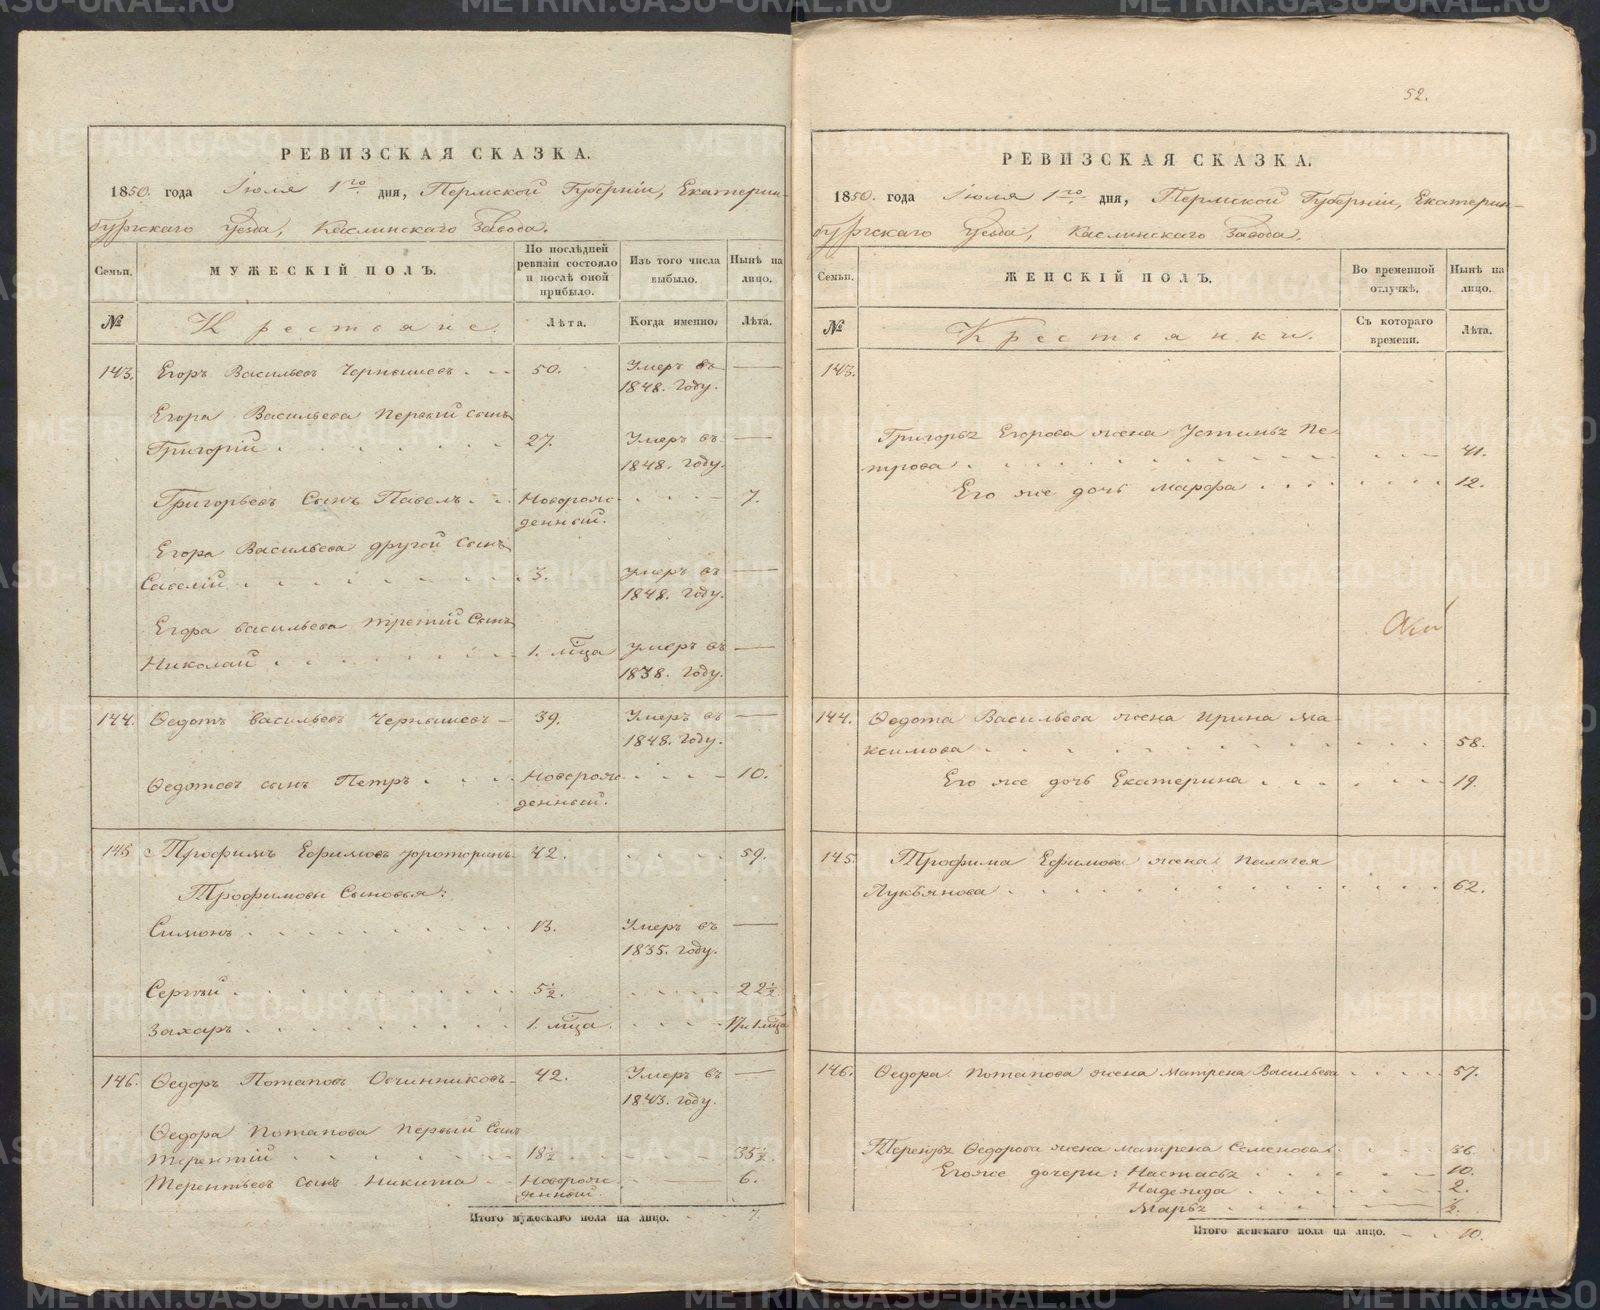 РЕВИЗСКАЯ СКАЗКА.
1850. года Іюля 1го дня, Пермской Губерніи, Екатерин-
бургскаго Уезда, Каслинскаго Завода.
Семьи.
МУЖЕСКІЙ ПОЛЪ.
По послѣдней
ревизіи состояло
и послѣ оной
прибыло.
Изъ того числа
выбыло.
Нынѣ на
лицо.
№
Крестьяне.
Лѣта.
Когда именно.
Лѣта.
143. Егоръ Васильевъ Чернышевъ . . 50. Умеръ въ —
1848. году.
Егора Васильева первый сынъ
Григорій . . . . . . 27. Умеръ въ —
1848. году.
Григорьевъ Сынъ Павелъ . . Новорож- . . . 7.
денный.
Егора Васильева другой сынъ
Савелій . . . . . . . 3. умеръ въ —
1848. году.
Егора васильева третій Сынъ
Николай . . . . . . 1. мца умеръ въ —
1838. году.
144. Ѳедотъ Васильевъ Чернышевъ - 39. Умеръ въ —
1848. году.
Ѳедотовъ сынъ Петръ . . . . Новорож- . . . 10.
денный.
145 Трофимъ Ефимовъ 42. . . . . 59.
Трофимовы Сыновья:
Симонъ . . . . . . . . 13. Умеръ въ —
1835. году.
Сергѣй . . . . . . . . 5½. . . . . 22½.
Захаръ . . . . . . . . 1. мца. . . . . 17и1мца
146. Ѳедоръ Потаповъ Овчинниковъ - 42. Умеръ въ —
1843. году.
Ѳедора Потапова Первый Сынъ
Терентій . . . . . . . 18½ . . . . 35½.
Терентьевъ сынъ Никита - - Новорож- 6.
денный.
Итого мужескаго пола на лицо. . . . 7.
52.
РЕВИЗСКАЯ СКАЗКА.
1850. года Іюля 1го дня, Пермской Губерніи, Екатерин-
бургскаго Уезда, Каслинскаго Завода.
Семьи.
ЖЕНСКІЙ ПОЛЪ.
Во временной
отлучкѣ.
Нынѣ на
лицо.
№
Крестьянки.
Съ котораго
времени.
Лѣта.
143.
Григорья Егорова жена Устинья Пе-
трова . . . . . . . . . 41.
Его же дочь марфа . . . . . . . 12.
144. Ѳедота Васильева жена Ирина Ма-
ксимова . . . . . . . . . 58.
Его же дочь Екатерина . . . . . . 19.
145. Трофима Ефимова жена Палагея
Лукьянова . . . . . . . . . 62.
146. Ѳедора Потапова жена Матрена Васильева . . . . 57.
Терентья Ѳедорова жена матрена Семенова . . . . 36.
Егоже дочери: Настасья . . . . . 10.
Надежда . . . . . 2.
Марья . . . . . ½.
Итого женскаго пола на лицо. . . 10.
METRIKI.GASO-URAL.RU